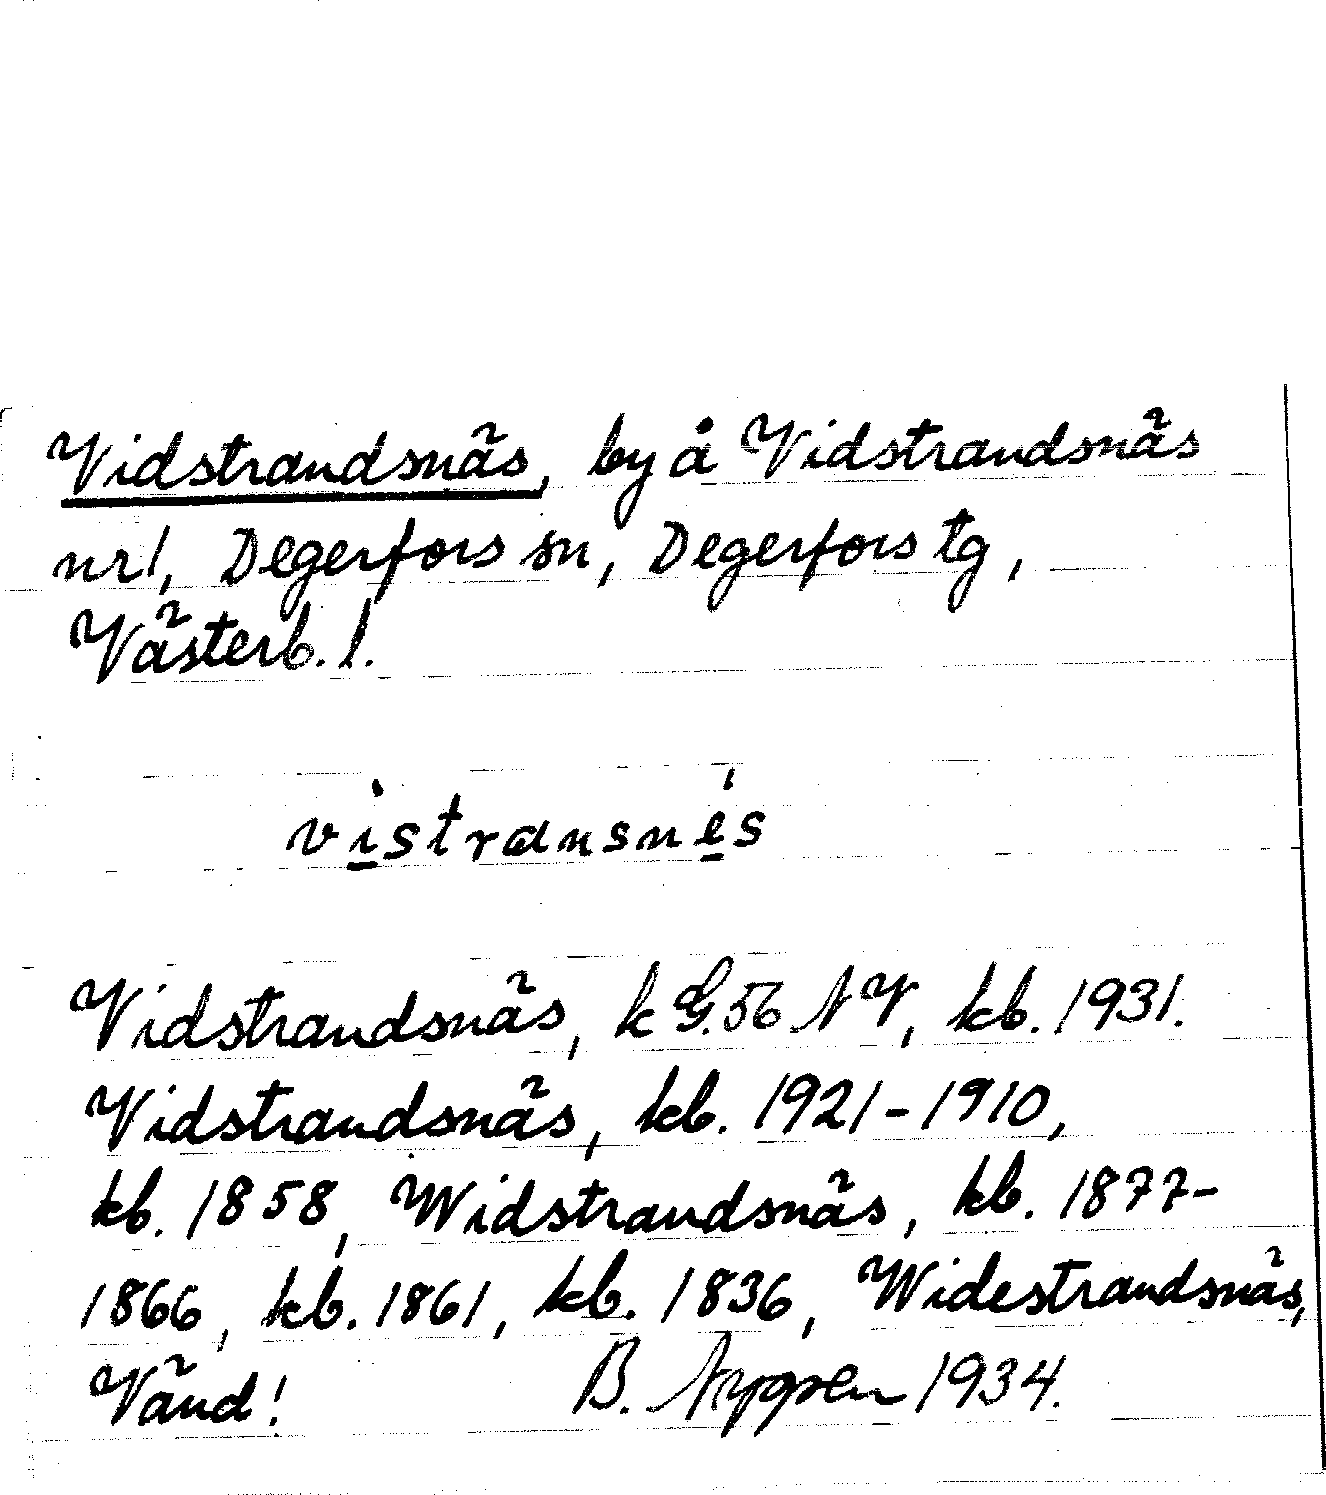 Vidstrandsnäs, by å Vidstrandsnäs
nr 1, Degerfors sn, Degerfors tg,
Västerb. l.
vistransnés
Vidstrandsnäs, k G. 56 NV, kb. 1931.
Vidstrandsnäs, kb. 1921-1910,
kb. 1858, Widstrandsnäs, kb. 1877-
1866, kb. 1861, kb. 1836, Widestrandsnäs,
Vänd! B. Nygren 1934.